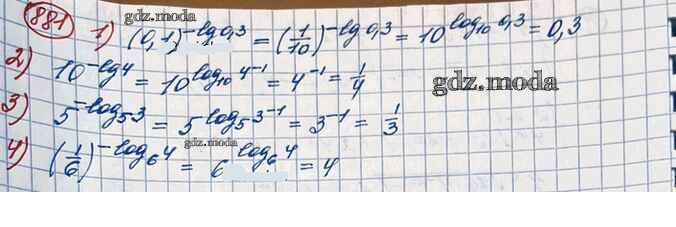 881 1) (0,1)^{-lg 0,3} = (1/10)^{-lg 0,3} = 10^{log_{10} 0,3} = 0,3
gdz.moda
2) 10^{-lg 4} = 10^{log_{10} 4^{-1}} = 4^{-1} = 1/4
gdz.moda
gdz.moda
3) 5^{-log_5 3} = 5^{log_5 3^{-1}} = 3^{-1} = 1/3
gdz.moda
gdz.moda
4) (1/6)^{-log_6 4} = 6^{log_6 4} = 4